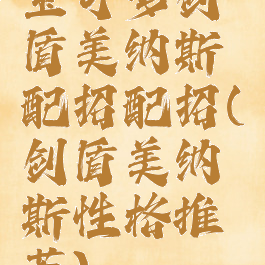 宝可梦剑
盾美纳斯
配招配招(
剑盾美纳
斯性格推
荐)